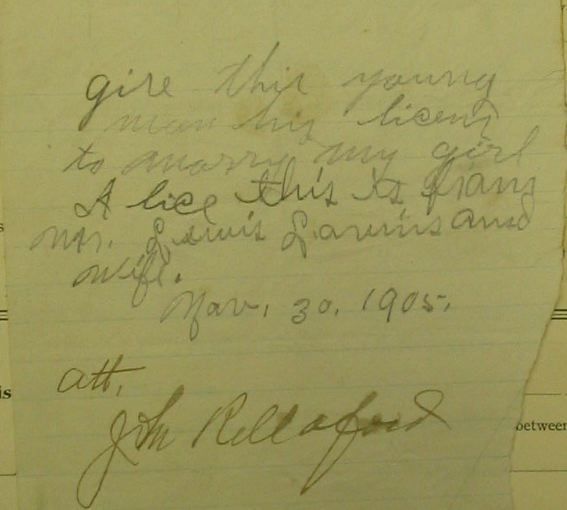 give this young
man his licens
to marry my girl
Alice this is from
Mr. Lewis Lawris and
wife.
Nov. 30. 1905.
att,
John Rellaford
is
between